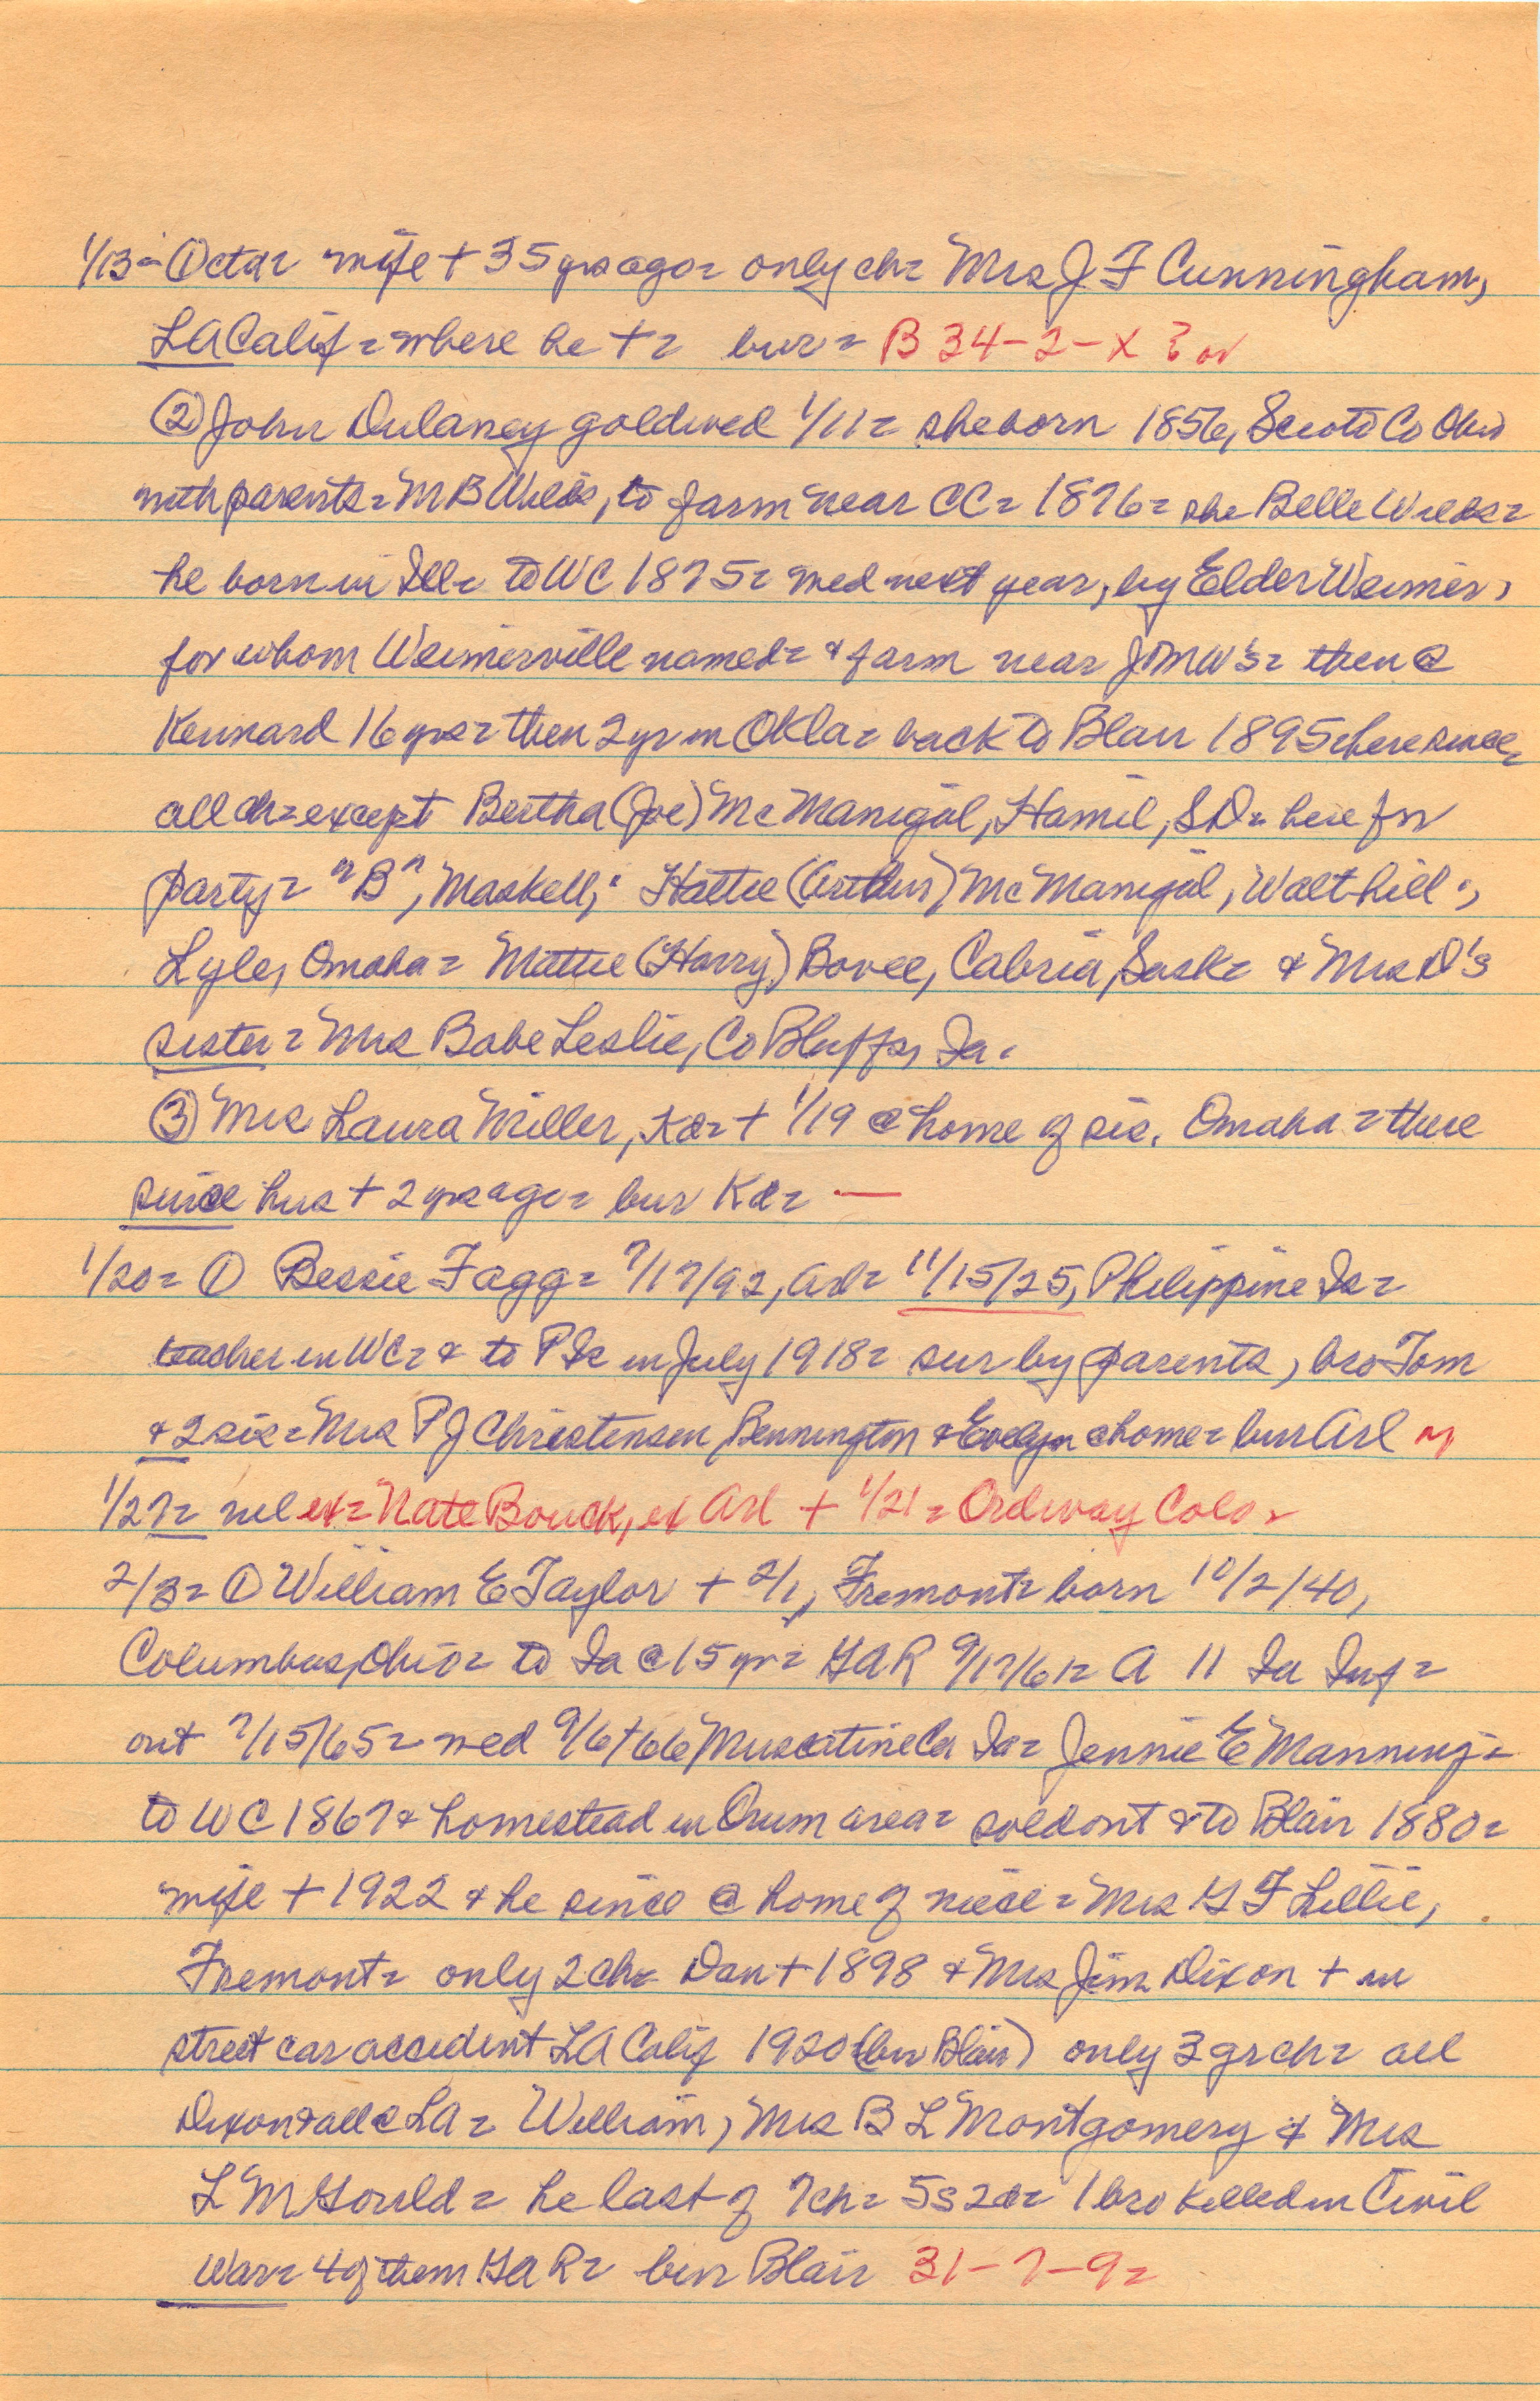 1/13 = ① cta = wife + 35 yrs ago = only ch = Mrs J F Cunningham,
LA Calif = where he + = bur = B 34-2-X
② John Dulaney gold wed 1/11 = she born 1856, Scioto Co Ohio
with parents = M B Wilds, to farm near CC = 1876 = she Belle Wilds =
he born in Ill = to WC 1875 = med next year, by Elder Weimer,
for whom Weimerville named = & farm near = then @
Kennard 16 yrs = then 2 yr in Okla = back to Blair 1895 & here since,
all ch = except Bertha (Joe) McManigal, Hamil, SD = here for
party = "B", Maskell; Hattie (Arthur) McManigal, Walthill;
Lyle, Omaha = Mattie (Harry) Bovee, Cabria, Sask = & Mrs D's
sister = Mrs Babe Leslie, Co Bluffs, Ia.
③ Mrs Laura Miller, Kd = + 1/19 @ home of sis. Omaha = there
since hus + 2 yrs ago = bur Kd = —
1/20 = ① Bessie Fagg = 7/17/92, Arl = 11/15/25, Philippine Is =
teacher in WC = & to P Is in July 1918 = sur by parents, bro Tom
& 2 sis = Mrs P J Christensen, Bennington & Evelyn @ home = bur Arl
1/27 = nil ex = Nate Bouck, ex Arl + 1/21 = Ordway Colo =
2/3 = ① William E Taylor + 2/1, Fremont = born 10/2/40,
Columbus, Ohio = to Ia @ 15 yr = GAR 9/17/61 = A 11 Ia Inf =
out 7/15/65 = med 9/6/66 Muscatine Co Ia = Jennie E Manning =
to WC 1867 & homestead in Orum area = sold out & to Blair 1880 =
wife + 1922 & he since @ home of niece = Mrs G F Lillie,
Fremont = only 2 ch = Dan + 1898 & Mrs Jim Dixon + in
street car accident LA Calif 1920 (bur Blair) only 3 grch = all
Dixon & all @ LA = William, Mrs B L Montgomery & Mrs
L M Gould = he last of 7 ch = 5s 2d = 1 bro killed in Civil
War = 4 of them GAR = bur Blair 31-7-9 =